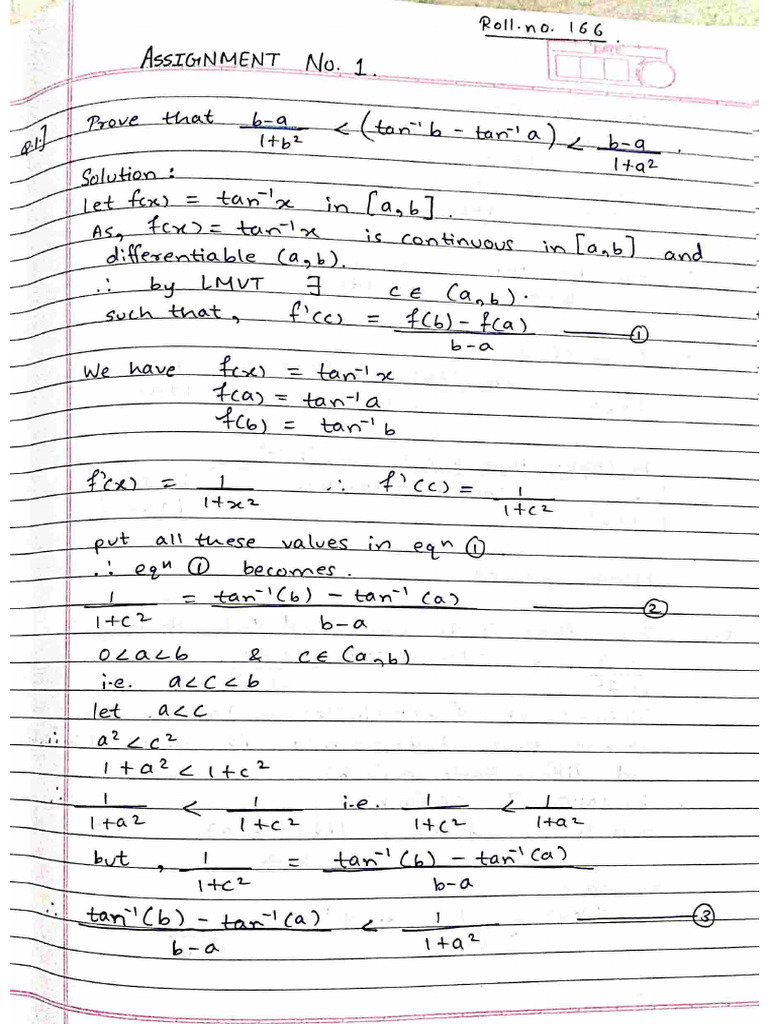 Roll.no. 166.
DATE
ASSIGNMENT No. 1.
Q.1] Prove that b-a/1+b² < (tan⁻¹b - tan⁻¹a) < b-a/1+a².
Solution :
Let f(x) = tan⁻¹x in [a,b].
As, f(x) = tan⁻¹x is continuous in [a,b] and
differentiable (a,b).
∴ by LMVT ∃ c ∈ (a,b).
such that, f'(c) = f(b) - f(a)/b-a ——— ①
We have f(x) = tan⁻¹x
f(a) = tan⁻¹a
f(b) = tan⁻¹b
f'(x) = 1/1+x² ∴ f'(c) = 1/1+c²
put all these values in eqn ①
∴ eqn ① becomes.
1/1+c² = tan⁻¹(b) - tan⁻¹(a)/b-a ——— ②
0<a<b & c∈(a,b)
i.e. a<c<b
let a<c
∴ a²<c²
1+a²<1+c²
∴ 1/1+a² < 1/1+c² i.e. 1/1+c² < 1/1+a²
but, 1/1+c² = tan⁻¹(b) - tan⁻¹(a)/b-a
∴ tan⁻¹(b) - tan⁻¹(a)/b-a < 1/1+a² ——— ③